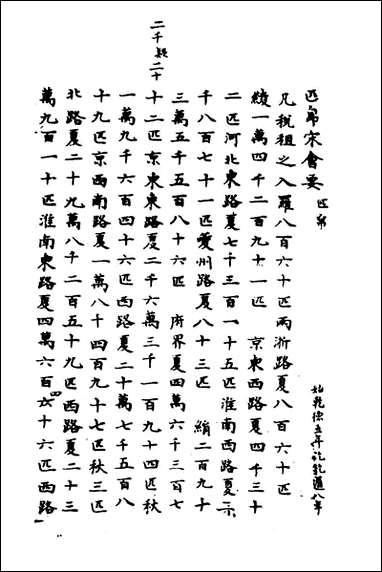 匹帛宋會要 匹帛
始乾德五年訖乾道八年
凡稅租之入羅八百六十匹兩浙路夏八百六十匹
綾一萬四千二百九十一匹 京東西路夏四千三十
二匹河北東路夏七千三百一十五匹淮南西路夏二
千八百七十一匹夔州路夏八十三匹 絹二百九十
三萬五千五百八十六匹 府界夏四萬六千三百七
十二匹京東東路夏二千六萬三千一百九十四匹秋
二千疑二十
一萬九千六百四十六匹西路夏二十萬七千五百八
十九匹京西南路夏一萬八千四百九十七匹秋三匹
北路夏二十九萬八千二百五十九匹西路夏二十三
萬九百一十匹淮南東路夏四萬六百四十六匹西路